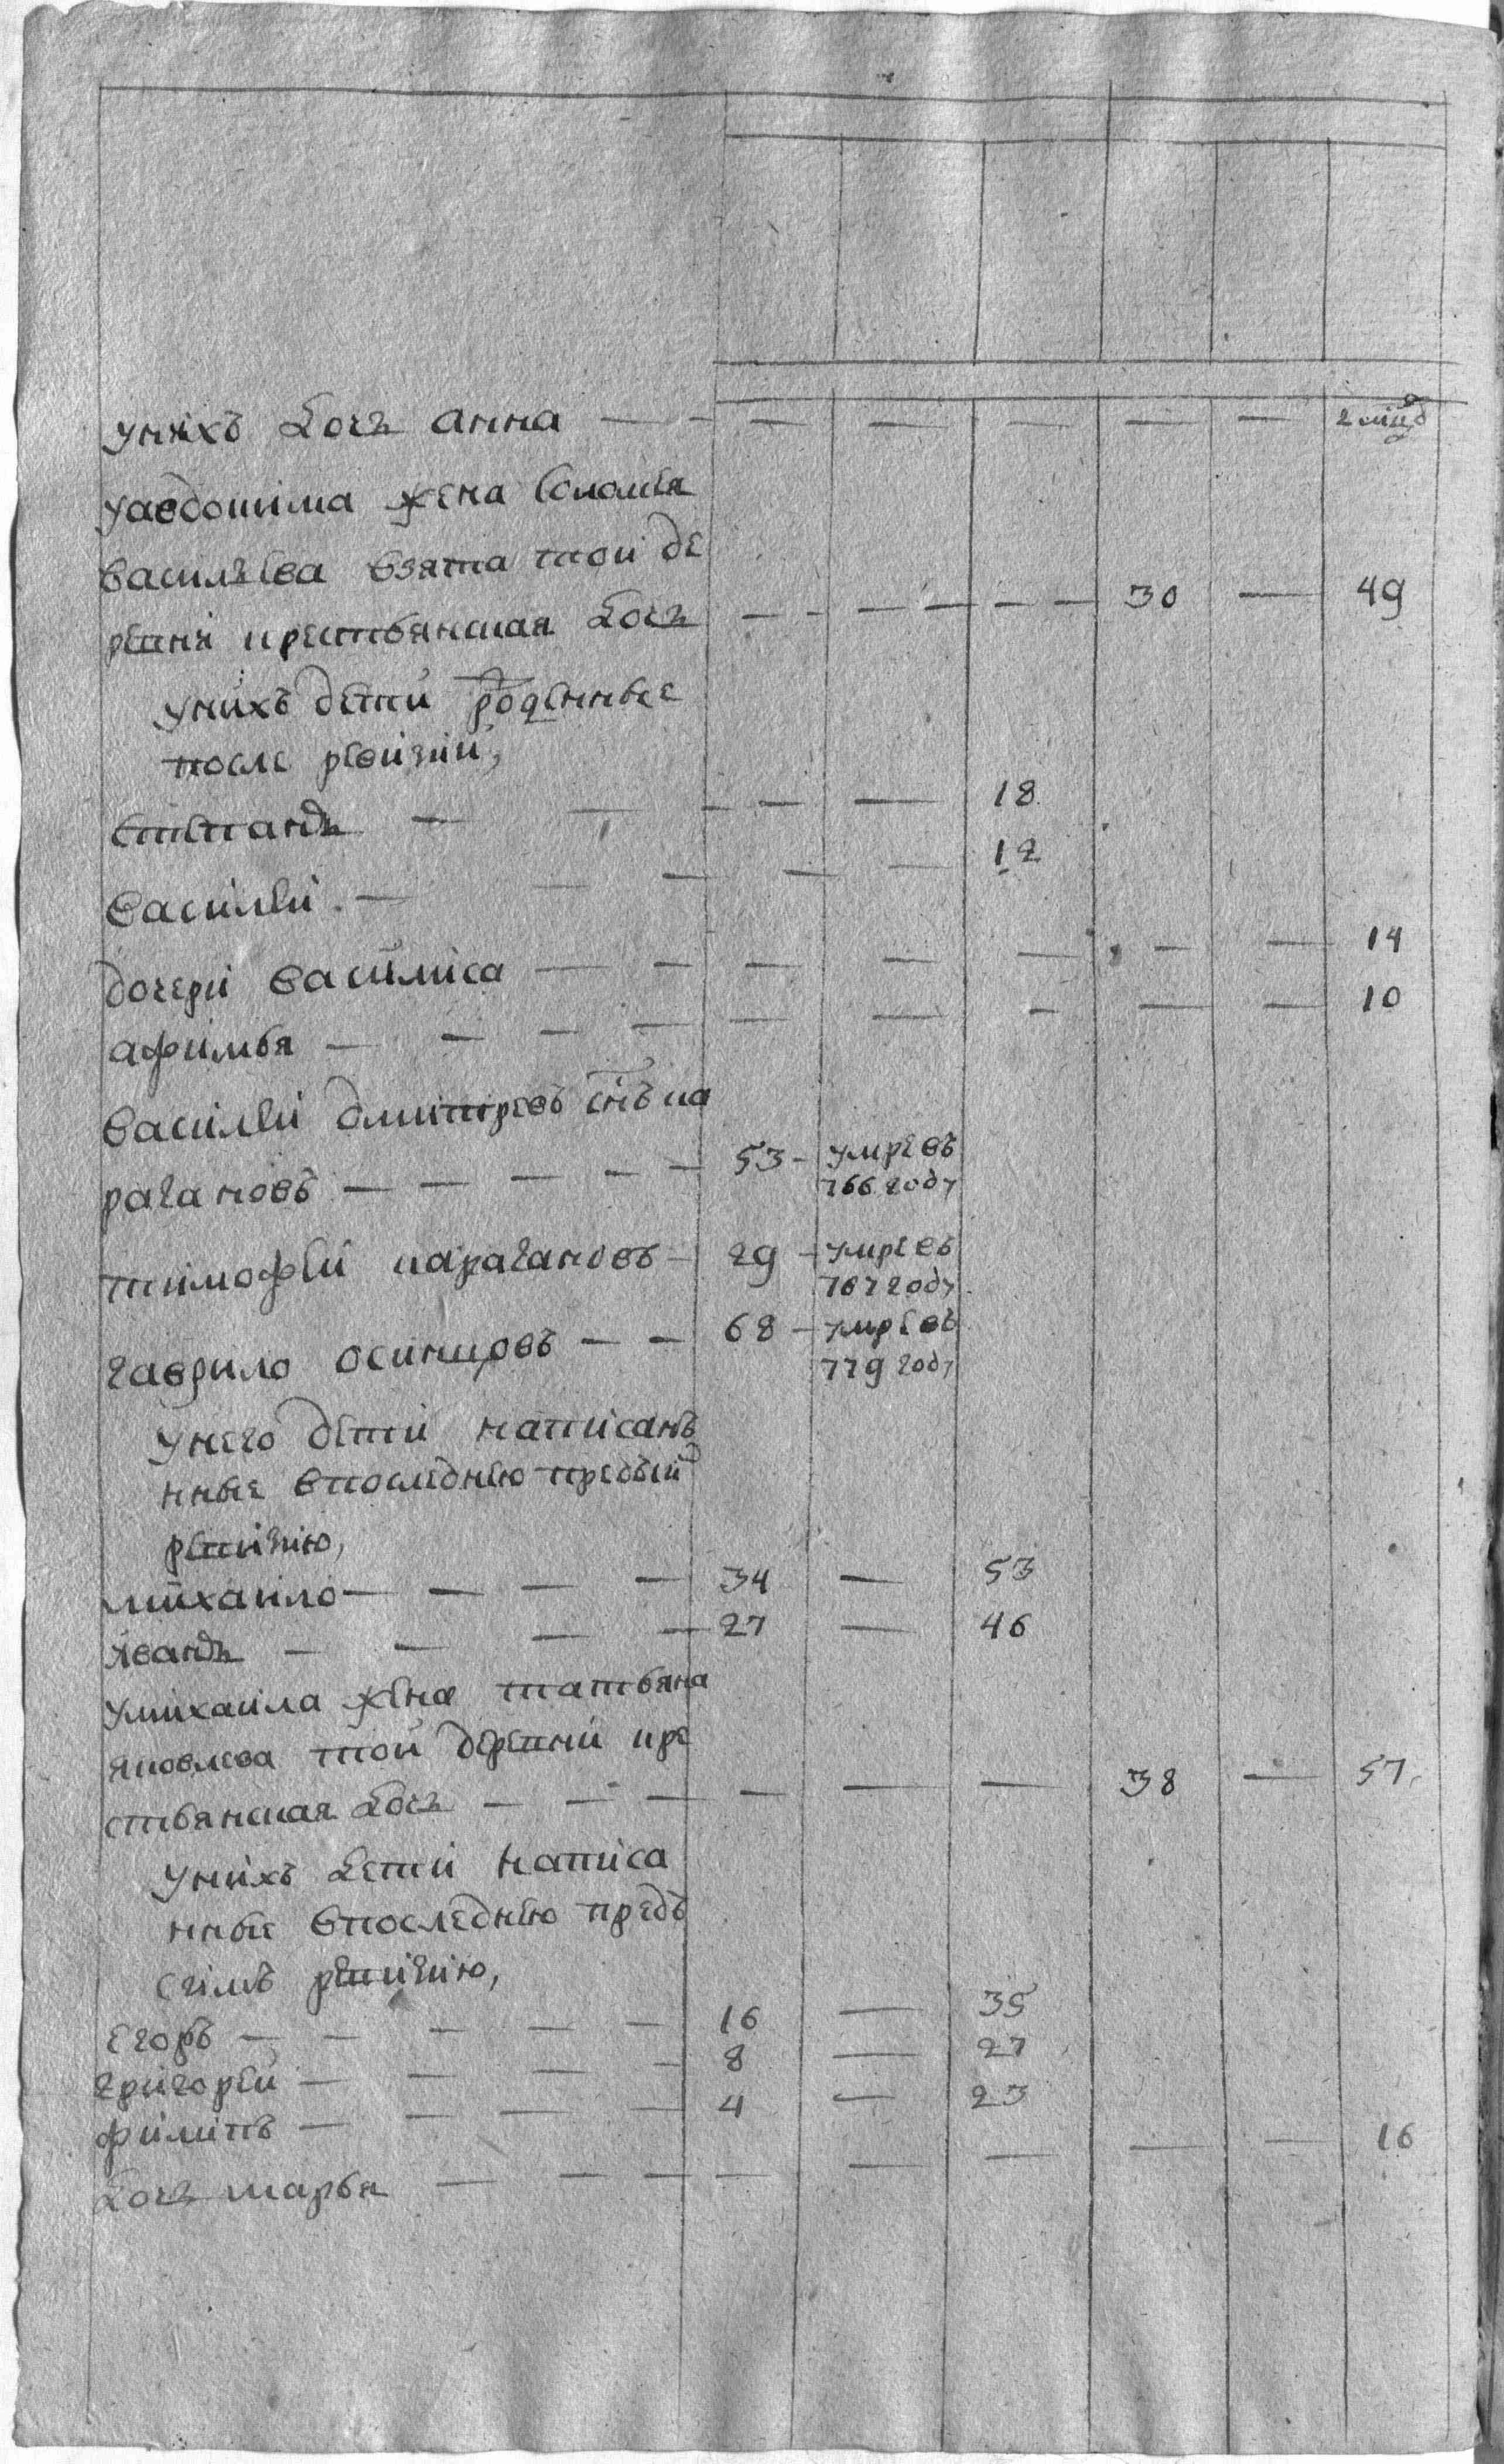 унихъ дочь анна — — — — — — — 2 мцд
уавдокима жена Соломея
васильева взята той де
ревни крестьянская дочь — — — — — — 30 — 49
унихъ дети рожденные
после ревизии,
степанъ — — — — — 18
василеи — — — — — — 12
дочери василиса — — — — — — — 14
афимья — — — — — — — — — 10
василеи дмитревъ снъ ка
рагановъ — — — — — 53 — умре въ
766 году
тимофеи карагановъ — 29 — умре въ
767 году
гаврило осинцовъ — — 68 — умре въ
779 году
унего дети написанъ
ные впоследнюю предъ сию
ревизию,
михаило — — — — 34 — 53
иванъ — — — — 27 — 46
умихаила жена татьяна
яковлева той деревни кре
стьянская дочь — — — — — — 38 — 57
унихъ дети написа
нные впоследнюю предъ
симъ ревизию,
егоръ — — — — — 16 — 35
григореи — — — — 8 — 27
филипъ — — — — 4 — 23
дочь марья — — — — — — — — 16